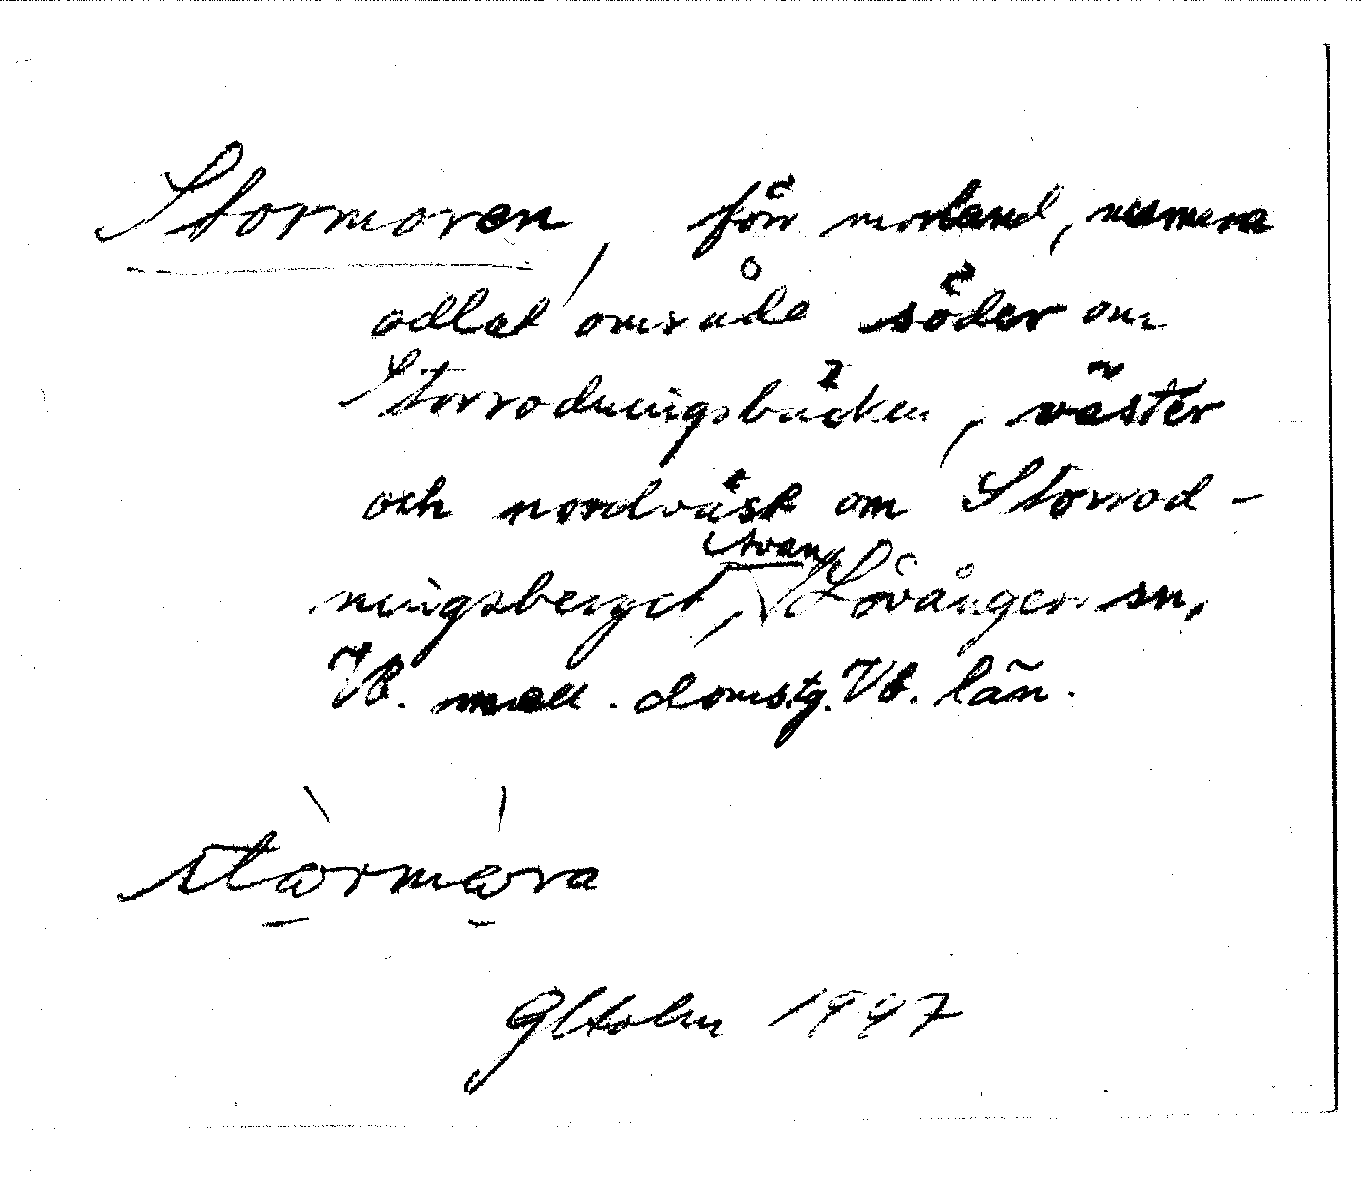 Stormoren, förr morland, numera
odlat område söder om
Storrodningsbäcken, väster
och nordväst om Storrod-
ningsberget, Svan, Lövånger sn,
Vb. mell. domstg. Vb. län.
stòrmóra
GHolm 1997